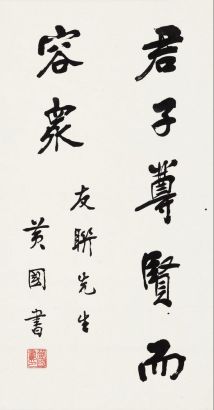 君子尊賢而
容衆
友聯先生
黃國書